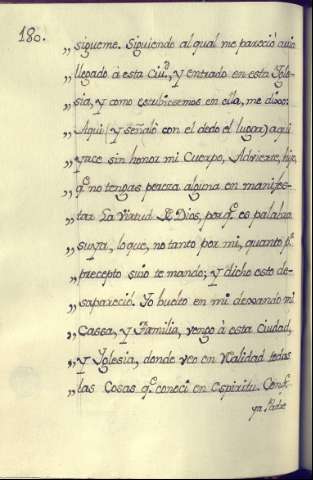 180.
„ sigueme. Siguiendo al qual me pareciò avia
„ llegado à esta Ciud, y entrado en esta Ygle-
„ sia, y como estubiesemos en ella, me dixo:
„ Aqui (y señalò con el dedo el lugar) aqui
„ yace sin honor mi Cuerpo, Advierte, hijo,
„ q.e no tengas pereza alguna en manifes-
„ tar la virtud de Dios, porq.e es palabra
„ suya, lo que, no tanto por mi, quanto p.r
„ precepto suio te mando; y dicho esto de-
„ sapareciò. Yo buelto en mi dexando mi
„ Cassa, y Familia, vengo à esta Ciudad,
„ y Yglesia, donde veo en realidad todas
„ las Cosas q.e conoci en espiritu.